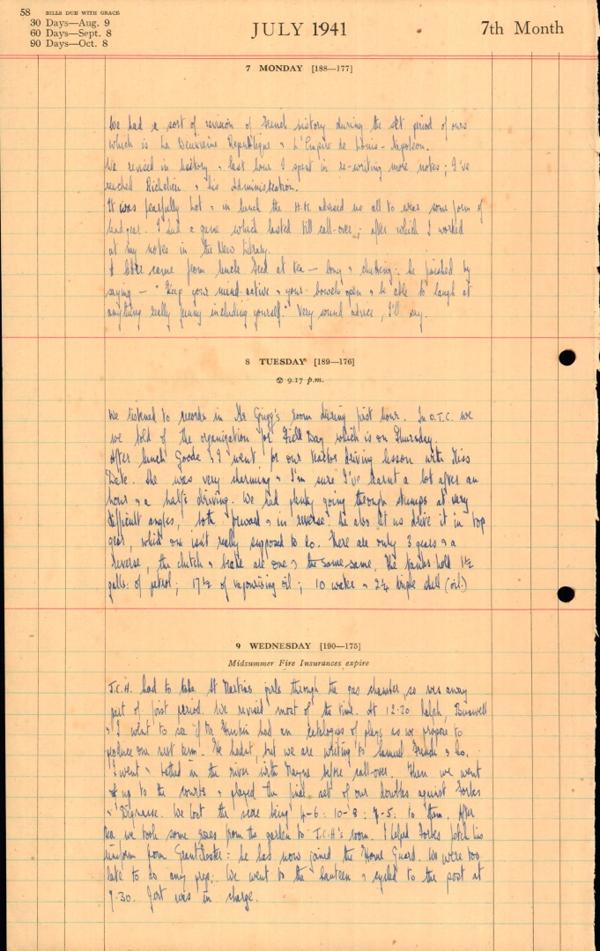 58 BILLS DUE WITH GRACE
30 Days—Aug. 9
60 Days—Sept. 8
90 Days—Oct. 8
JULY 1941
7th Month
7 MONDAY [188—177]
We had a sort of revision of French history during the set period of ours
which is La Deuxieme Republique & L'Empire de Louis-Napoleon.
We revised in history & last hour I spent in re-writing more notes; I've
reached Richelieu & his Administration.
It was fearfully hot & in lunch the H.M. advised us all to wear some form of
headgear. I had a game which lasted till call-over; after which I worked
at my notes in the New Library.
A letter came from Uncle Fred at tea — long & : he finished by
saying — "Keep your mind active & your bowels open & be able to laugh at
anything really funny including yourself." Very sound advice, I'll say.
8 TUESDAY [189—176]
9.17 p.m.
We listened to records in Mr Grigg's room during first hour. In O.T.C. we
were told of the organization for Field Day which is on Thursday.
After lunch Goode & I went for our tractor driving lesson with Miss
. She was very charming & I'm sure I've learnt a lot after an
hour & a half's driving. We had plenty going through stumps at very
difficult angles, both forward & in reverse; he also let us drive it in top
gear, which one isn't really supposed to do. There are only 3 gears & a
reverse, the clutch & brake are one & the same. The tanks hold 1½
galls: of petrol; 17½ of vaporising oil; 10 water & 2½ triple shell (oil)
9 WEDNESDAY [190—175]
Midsummer Fire Insurances expire
J.C.H. had to take St Martins girls through the gas chamber, so was away
part of last period. We revised most of the time. At 12.20 Ralph,
& I went to see if had an catalogues of plays as we propose to
produce one next term. He hadn't, but we are writing to Samuel French & Co.
I went & bathed in the river with before call-over. Then we went
up to the courts & played the final set of our doubles against Forbes
& . We lost the score being 4-6: 10-8: 7-5: to them. After
tea we took some from the garden to J.C.H's room. I helped Forbes fetch his
uniform from Grantchester: he has now joined the Home Guard. We were too
late to do any prep: We went to the Canteen & cycled to the post at
9.30. was in charge.